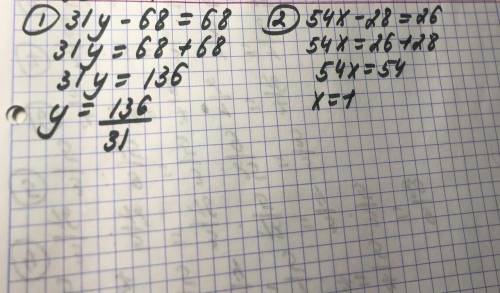 ① 31y - 68 = 68
31y = 68 + 68
31y = 136
y = 136/31
② 54x - 28 = 26
54x = 26 + 28
54x = 54
x = 1